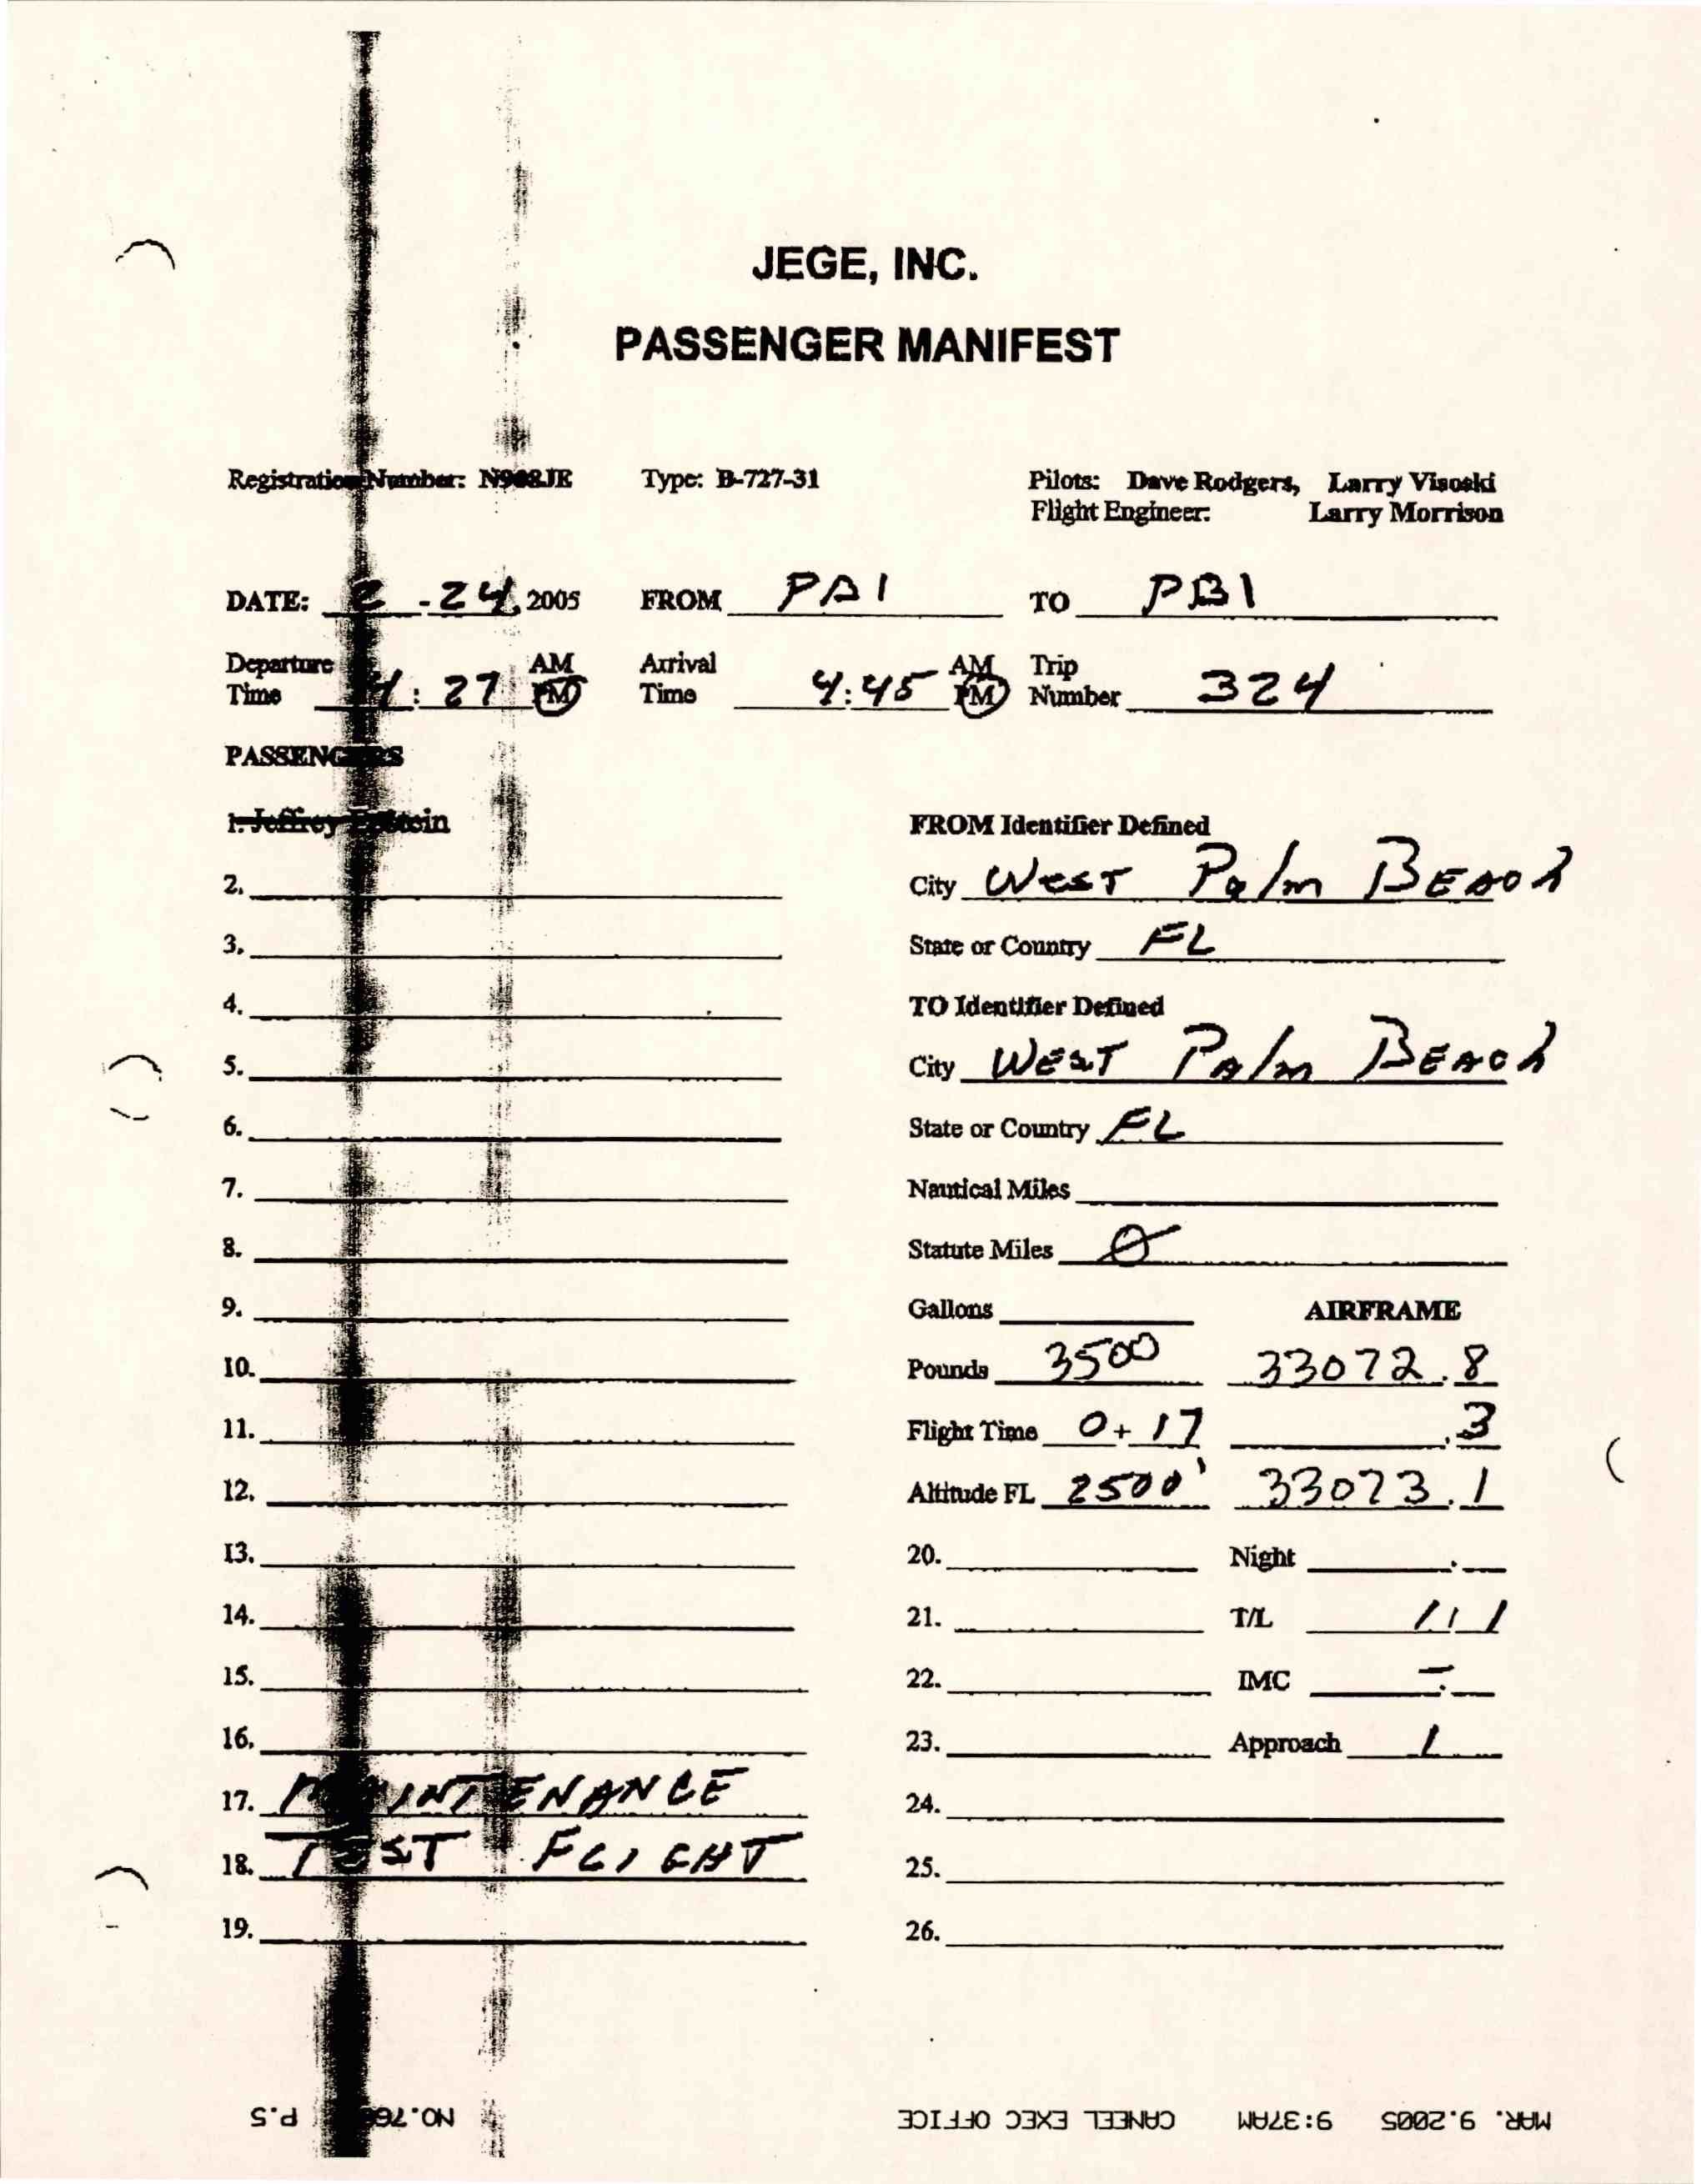 JEGE, INC.
PASSENGER MANIFEST
Registration Number: N908JE Type: B-727-31 Pilots: Dave Rodgers, Larry Visoski
Flight Engineer: Larry Morrison
DATE: 2-24, 2005 FROM PBI TO PBI
Departure Time 4:27 AM PM Arrival Time 4:45 AM PM Trip Number 324
PASSENGERS
1. Jeffrey Epstein
FROM Identifier Defined
2. City West Palm BEACh
3. State or Country FL
4. TO Identifier Defined
5. City WEST PAlm BEACh
6. State or Country FL
7. Nautical Miles
8. Statute Miles 0
9. Gallons AIRFRAME
10. Pounds 3500 33072.8
11. Flight Time 0+17 .3
12. Altitude FL 2500' 33073.1
13. 20. Night .
14. 21. T/L 1/1
15. 22. IMC -.
16. 23. Approach 1
17. MAINTENANCE 24.
18. TEST FLIGHT 25.
19. 26.
MAR. 9.2005 9:37AM CANEEL EXEC OFFICE P.5